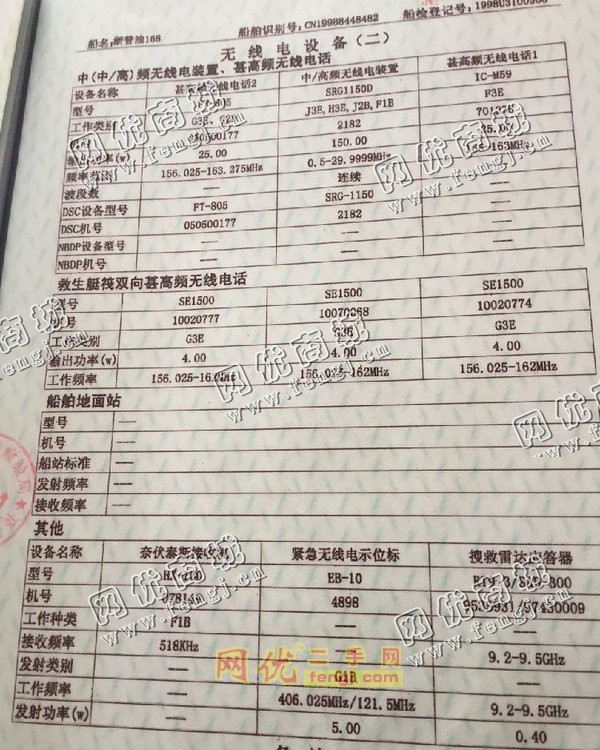 船名:浙普油168 船舶识别号:CN19988448482 船检登记号:1998U3100
无线电设备(二)
中(中/高)频无线电装置、甚高频无线电话
设备名称 甚高频无线电话2 中/高频无线电装置 甚高频无线电话1
型号 SRG1150D IC-M59
工作类别 J3E, H3E, J2B, F1B F3E
2182
输出功率(w) 25.00 150.00 25.00
频率范围 156.025-163.275MHz 0.5-29.9999MHz
波段数 --- 连续 ---
DSC设备型号 FT-805 SRG-1150 ---
DSC机号 050500177 2182 ---
NBDP设备型号 --- --- ---
NBDP机号 --- --- ---
救生艇筏双向甚高频无线电话
型号 SE1500 SE1500 SE1500
机号 10020777 10020774
工作类别 G3E G3E G3E
输出功率(w) 4.00 4.00 4.00
工作频率 156.025-162MHz 156.025-162MHz 156.025-162MHz
船舶地面站
型号 ---
机号 ---
船站标准 ---
发射频率 ---
接收频率 ---
其他
设备名称 奈伏泰斯接收机 紧急无线电示位标 搜救雷达应答器
型号 EB-10
机号 4898
工作种类 F1B --- ---
接收频率 518KHz --- 9.2-9.5GHz
发射类别 G1B ---
工作频率 406.025MHz/121.5MHz 9.2-9.5GHz
发射功率(w) 5.00 0.40
网优商城
www.fengj.cn
网优二手网
fengj.com